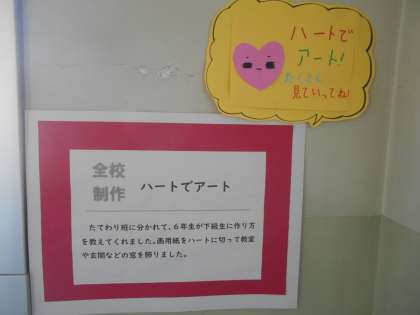 ハートで
アート!
たくさん
見ていってね!
全校
制作
ハートでアート
たてわり班に分かれて、6年生が下級生に作り方
を教えてくれました。画用紙をハートに切って教室
や玄関などの窓を飾りました。